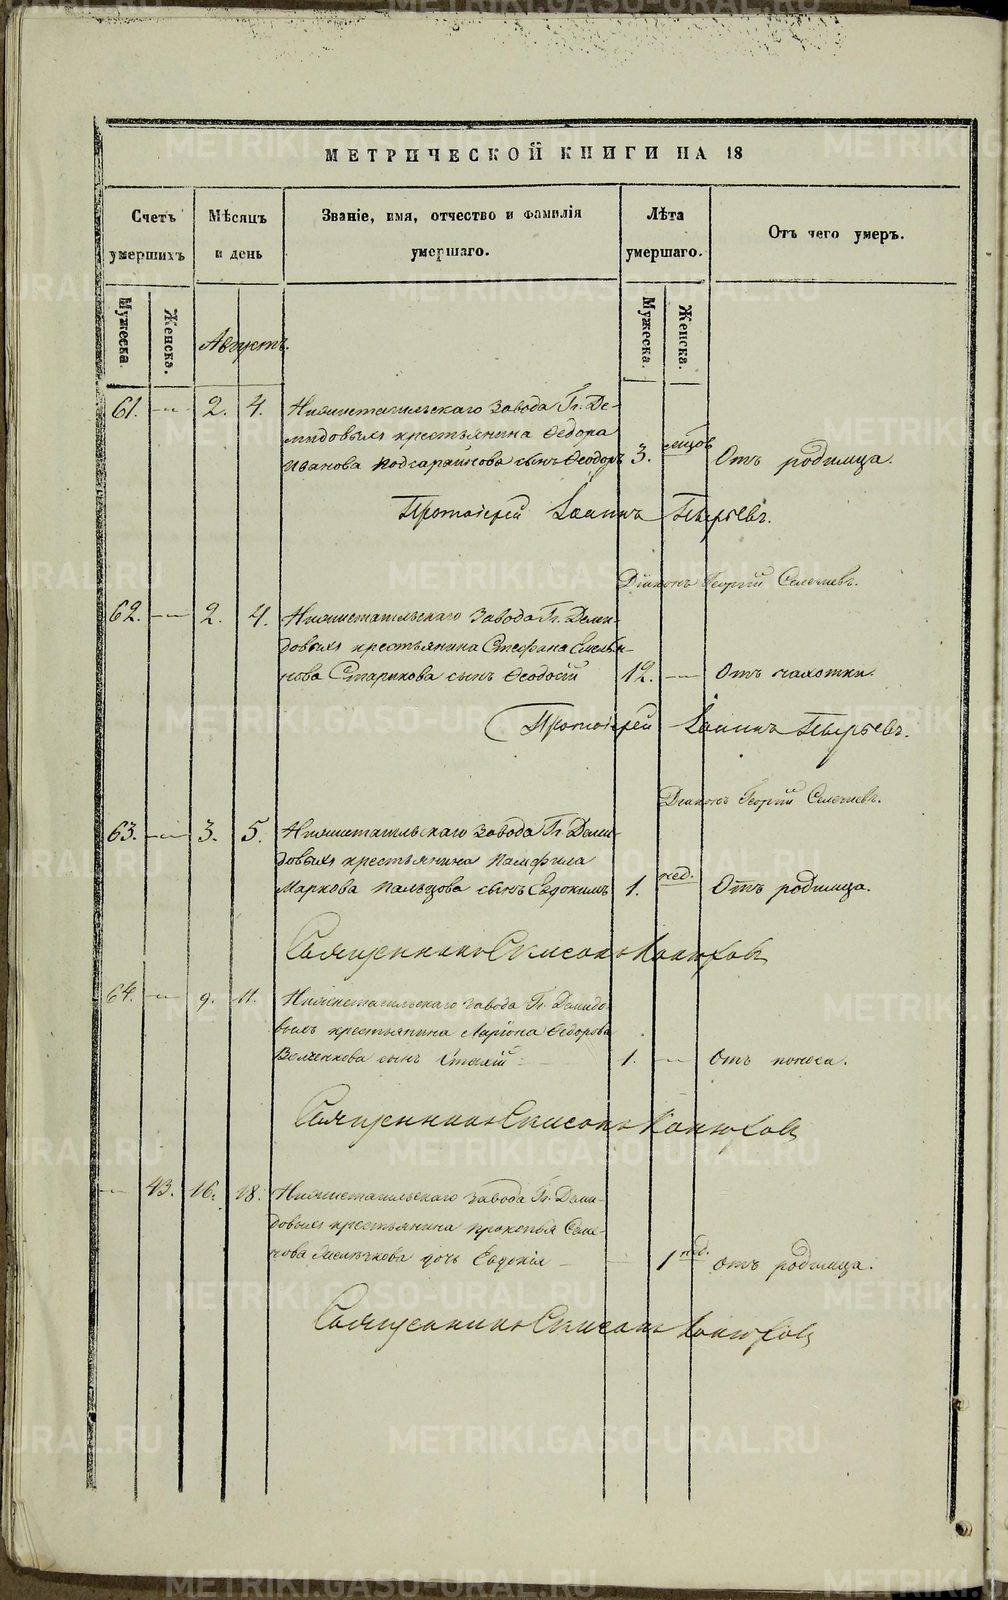 МЕТРИЧЕСКОЙ КНИГИ НА 18
Счетъ умершихъ
Мѣсяцъ и день
Званіе, имя, отчество и фамилія умершаго.
Лѣта умершаго.
Отъ чего умеръ.
Мужеска.
Женска.
Августъ.
Мужеска.
Женска.
61. — 2. 4. Нижнетагильскаго завода Гг. Де-
мидовыхъ крестьянина Ѳедора
Иванова сынъ Ѳеодоръ 3. мѣцов Отъ родимца.
Протоіерей Іоаннъ Пырьевъ.
Діаконъ Георгій
62. — 2. 4. Нижнетагильскаго завода Гг. Деми-
довыхъ крестьянина Стефана Емелья-
нова Старикова сынъ Ѳеодосій 12. — Отъ чахотки.
Протоіерей Іоаннъ Пырьевъ.
Діаконъ Георгій
63. — 3. 5. Нижнетагильскаго завода Гг. Деми-
довыхъ крестьянина Памфила
Маркова Пальцова сынъ Евдокимъ 1. нед. Отъ родимца.
Священникъ Конюховъ
64. — 9. 11. Нижнетагильскаго завода Гг. Демидо-
выхъ крестьянина Ларіона Ѳедорова
сынъ 1. — Отъ поноса.
Священникъ Конюховъ
— 43. 16. 18. Нижнетагильскаго завода Гг. Деми-
довыхъ крестьянина Прокопья Семе-
нова дочь Евдокія — 1 нед. отъ родимца.
Священникъ Конюховъ
METRIKI.GASO-URAL.RU